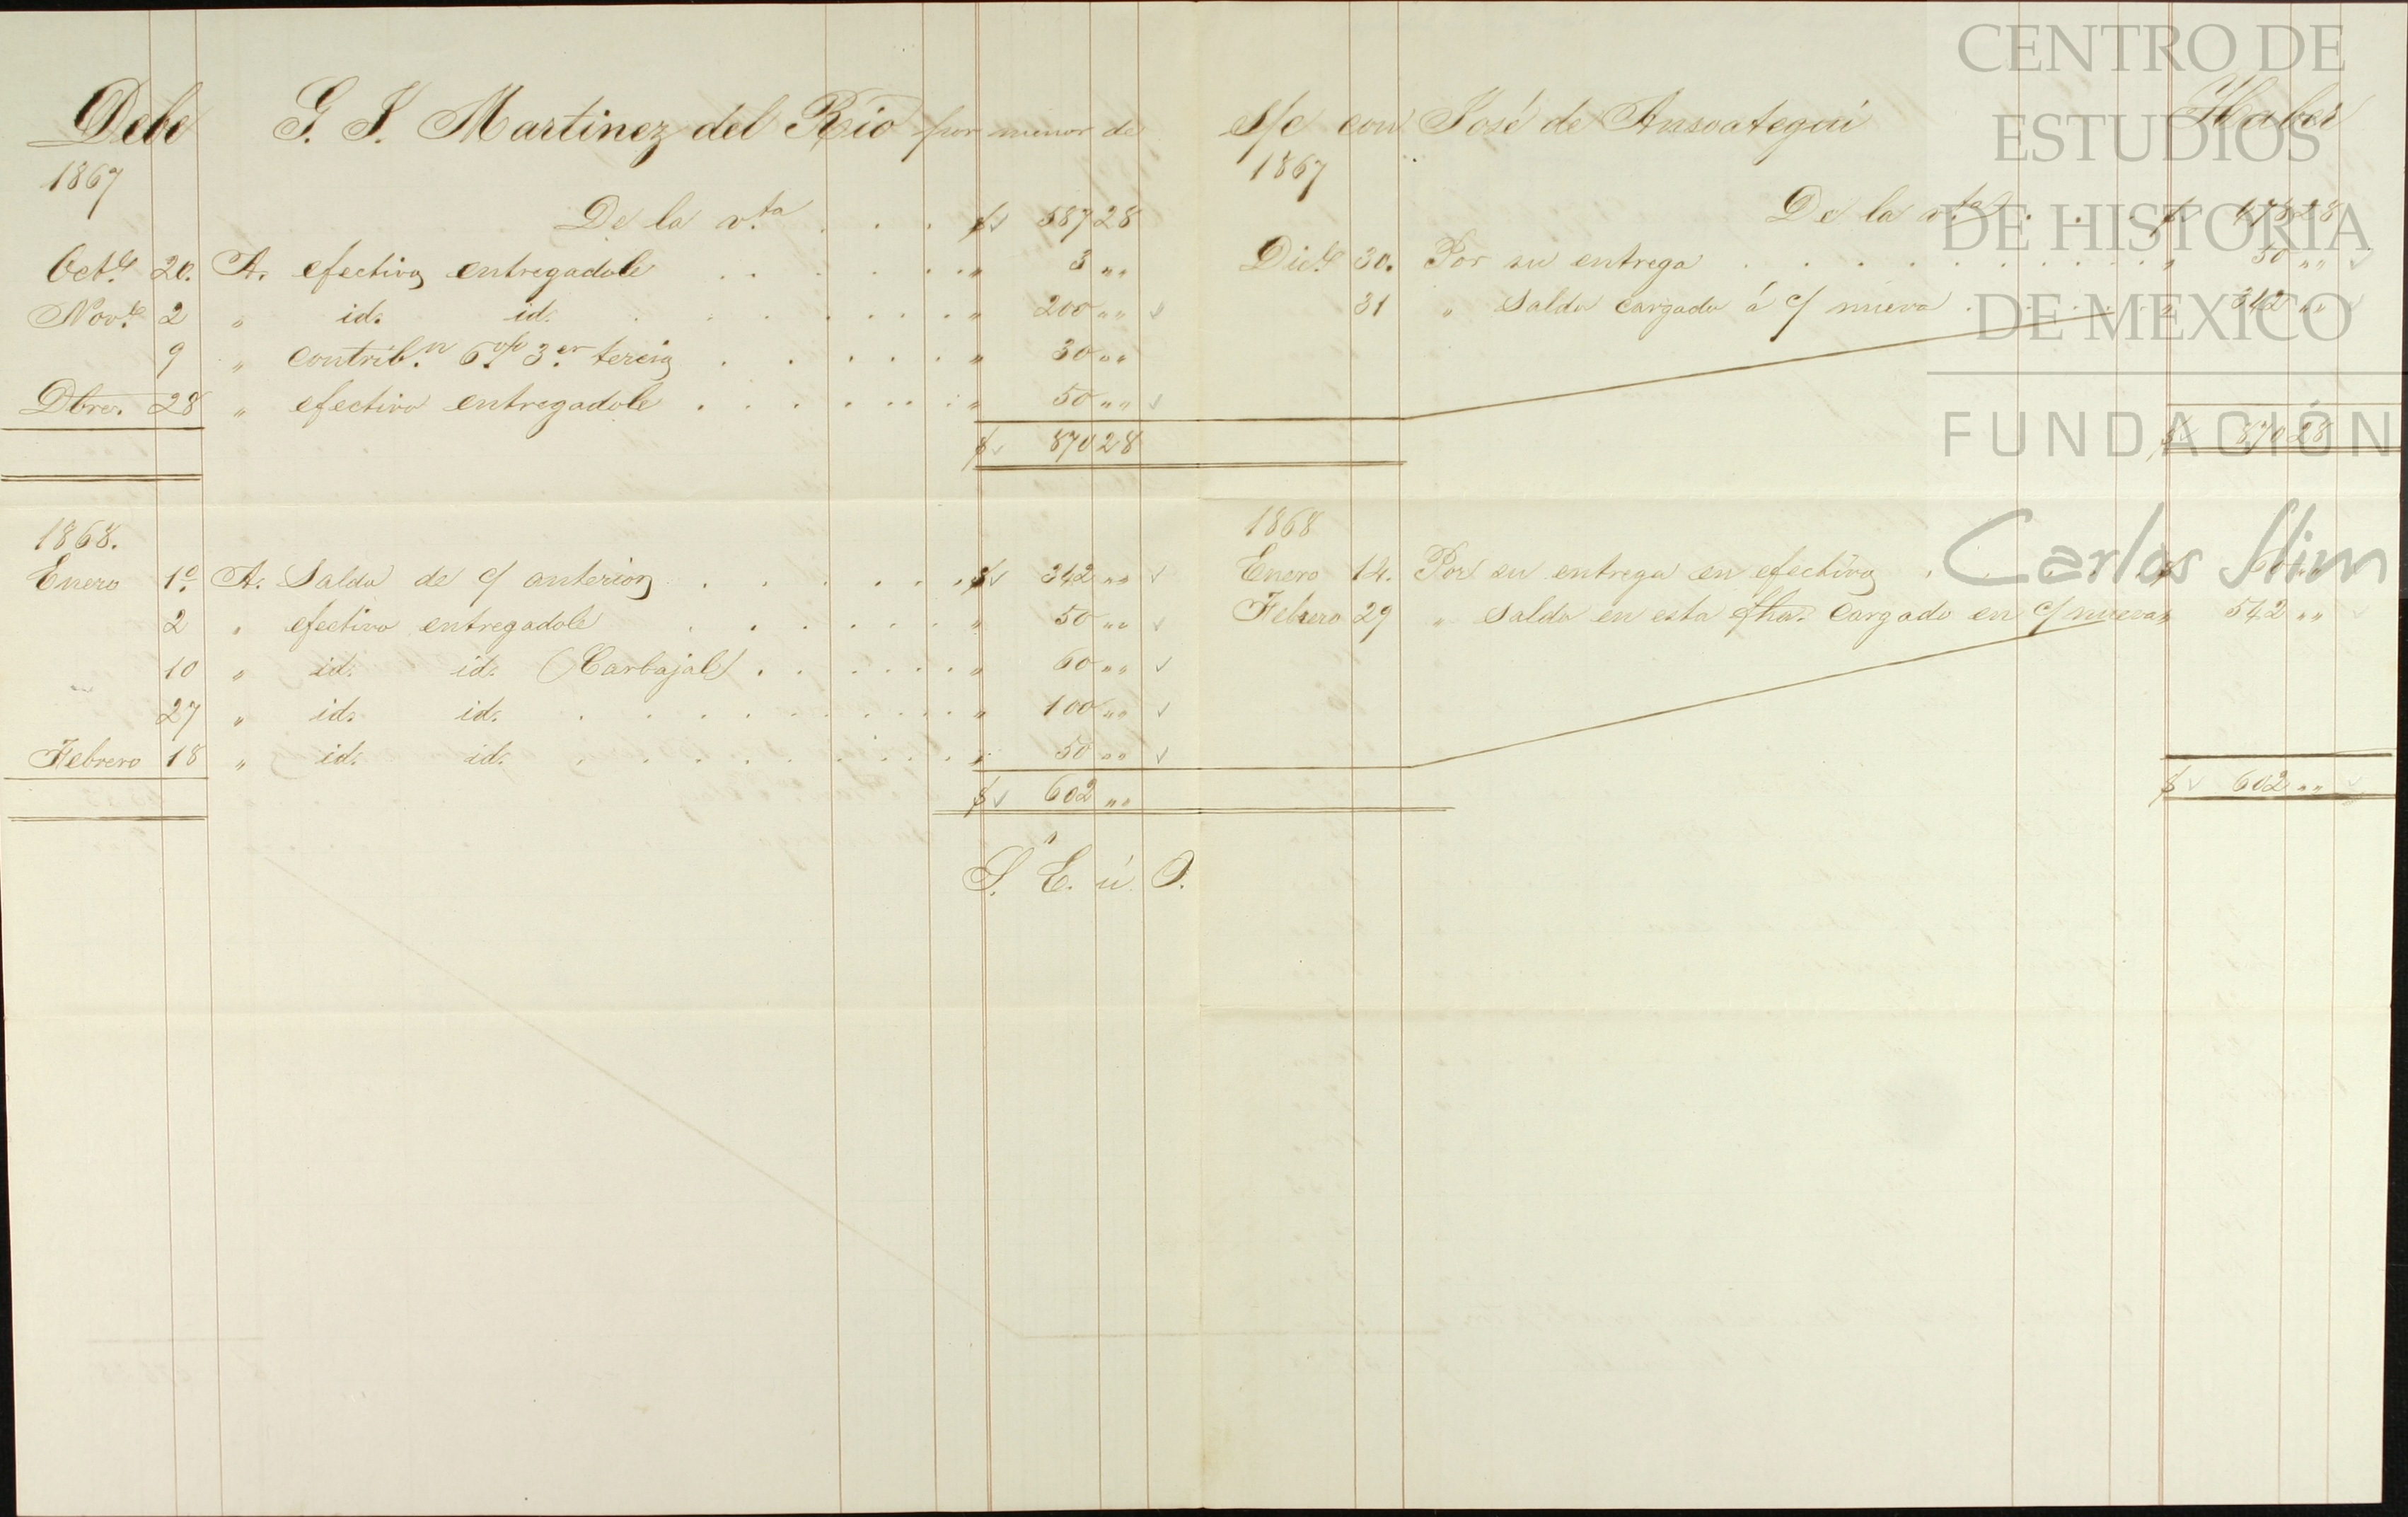 Debe G. J. Martinez del Rio por menor de
1867
De la v.ta . . . $ 587 28
Oct.e 20. A. efectivo entregadole . . . . . . " 3 " "
Nov.e 2 " id. id. . . . . . . " 200 " "
9 " contrib.n 6 o/o 3.er tercio . . . . . " 30 " "
Dbre. 28 " efectivo entregadole . . . . . . " 50 " "
$ 870 28
1868.
Enero 1º A. Saldo de c/ anterior . . . . . . $ 342 " "
2 " efectivo entregadole . . . . . . " 50 " "
10 " id. id. (Carbajal) . . . . . . " 60 " "
27 " id. id. . . . . . . . . " 100 " "
Febrero 18 " id. id. . . . . . . . . " 50 " "
$ 602 " "
S. E. ú O.
s/c con José de Ansoategui Haber
1867
De la v.ta . . . $ 498 28
Dic.e 30. Por su entrega . . . . . . . . " 30 " "
31 " Saldo cargado á c/ nueva . . . . " 342 " "
$ 870 28
1868
Enero 14. Por su entrega en efectivo . . . . . $ 60 " "
Febrero 29 " Saldo en esta fha. cargado en c/ nueva " 542 " "
$ 602 " "
CENTRO DE
ESTUDIOS
DE HISTORIA
DE MEXICO
FUNDACIÓN
Carlos Slim